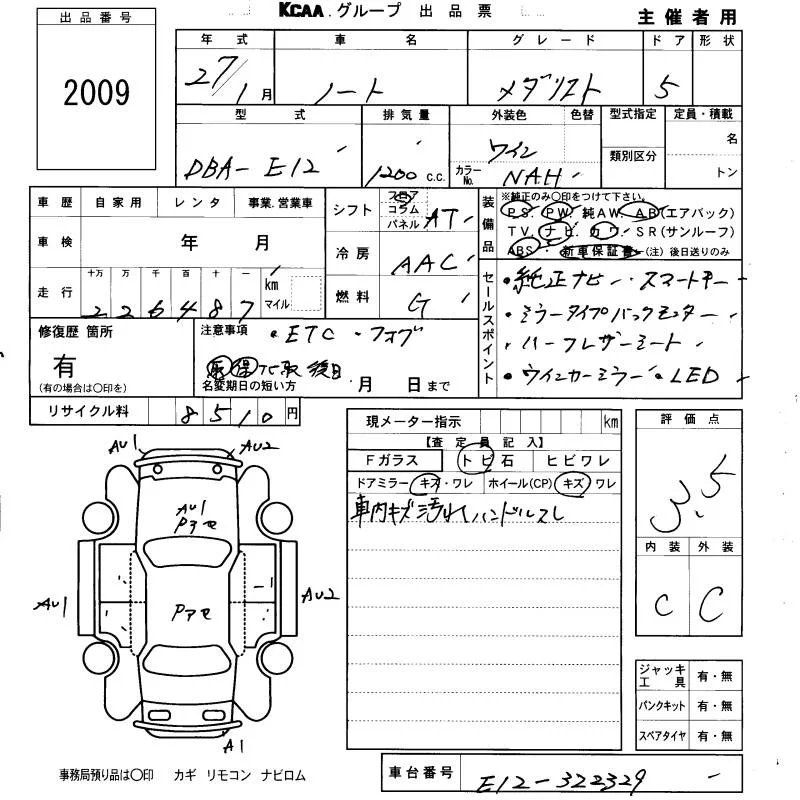 KCAA.グループ 出品票
主催者用
出品番号
2009
年式 車名 グレード ドア 形状
27/1月 ノート メダリスト 5
型式 排気量 外装色 色替 型式指定 定員・積載
DBA-E12 1200 c.c. ワイン 類別区分 名
カラーNo. NAH トン
車歴 自家用 レンタ 事業.営業車
車検 年 月
走行 十万 万 千 百 十 一
226487 km マイル
シフト フロア コラム パネル AT
冷房 AAC
燃料 G
装備品
※純正のみ○印をつけて下さい。
PS. PW. 純AW. AB(エアバック)
TV. ナビ. カワ. SR(サンルーフ)
ABS・新車保証書(注)後日送りのみ
セールスポイント
・純正ナビ・スマートキー
・ミラータイプバックモニター
・ハーフレザーシート
・ウインカーミラー・LED
修復歴 箇所
有
(有の場合は○印を)
注意事項 ・ETC・フォグ
取 保 後日
名変期日の短い方 月 日まで
リサイクル料 8510円
現メーター指示 km
【査定員記入】
Fガラス トビ石 ヒビワレ
ドアミラー キズ・ワレ ホイール(CP) キズ ワレ
車内キズ汚れ ハンドルスレ
評価点
3.5
内装 外装
C C
AU1 AU2
AU1
Pアセ
AU1 Pアセ AU2
A1
ジャッキ工具 有・無
パンクキット 有・無
スペアタイヤ 有・無
事務局預り品は○印 カギ リモコン ナビロム
車台番号 E12-322329